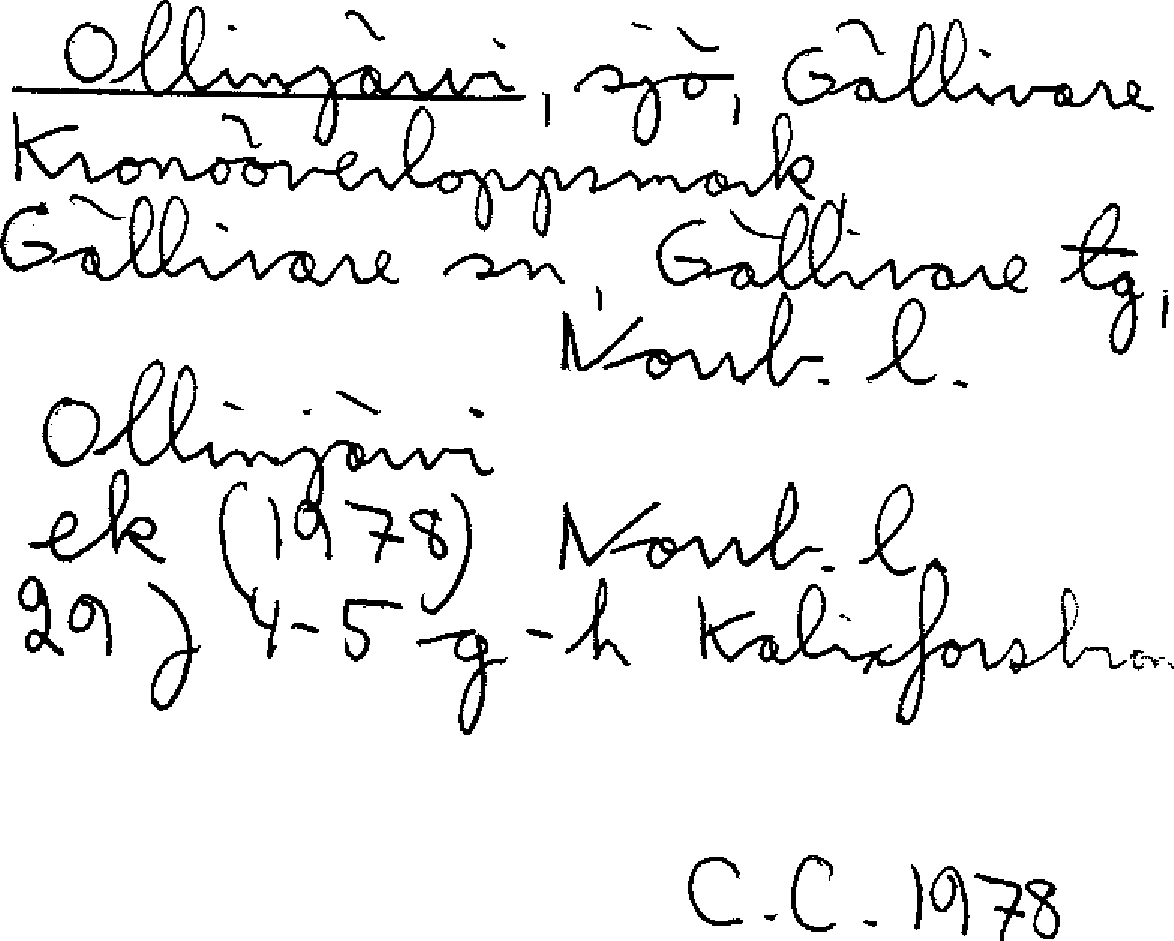 Ollinjärvi, sjö, Gällivare
Kronoöverloppsmark
Gällivare sn, Gällivare tg,
Norrb. l.
Ollinjärvi
ek (1978) Norrb. l.
29 J 4-5 g-h Kalixforsbron
C.C. 1978